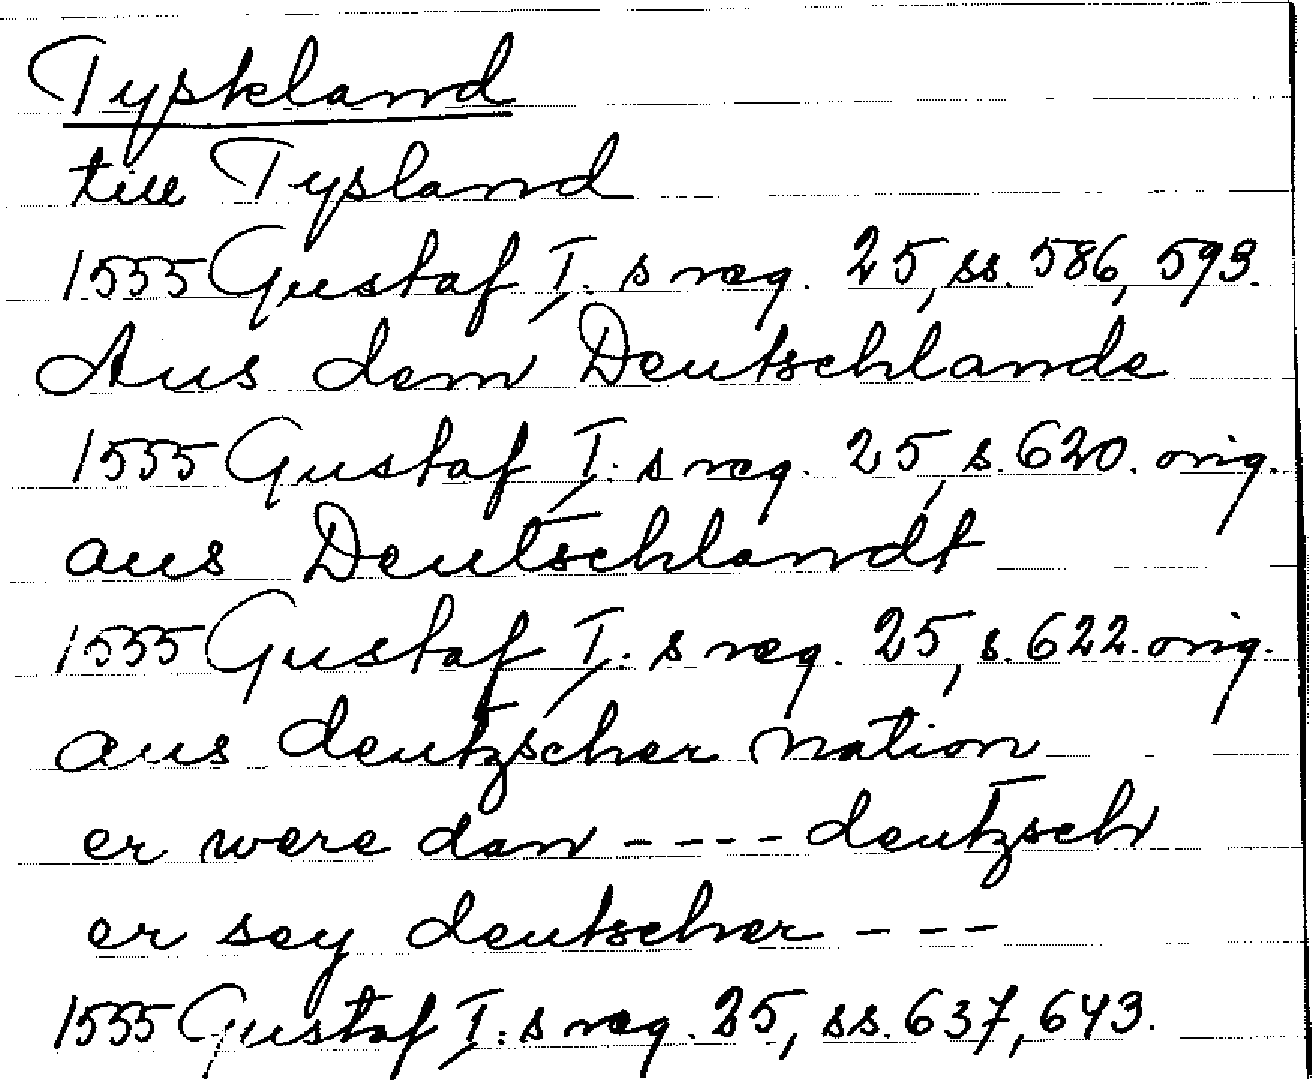 Tyskland
till Tysland
1555 Gustaf I:s reg. 25, ss. 586, 593.
Aus dem Deutschlande
1555 Gustaf I:s reg. 25, s. 620. orig.
aus Deutschlandt
1555 Gustaf I:s reg. 25, s. 622. orig.
aus deutzscher nation
er were dan - - - - deutzsch
er sey deutscher - - -
1555 Gustaf I:s reg. 25, ss. 637, 643.